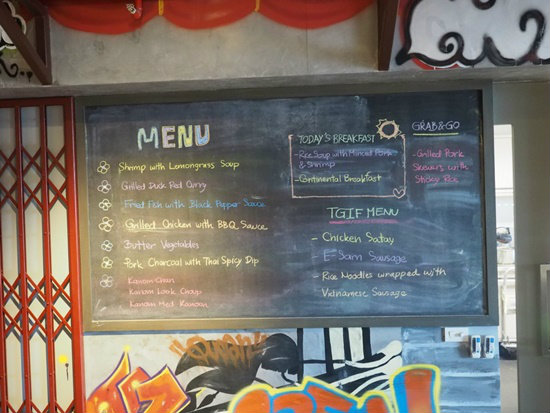 MENU
Shrimp with Lemongrass Soup
Grilled Duck Red Curry
Fried Fish with Black Pepper Sauce
Grilled Chicken with BBQ Sauce
Butter Vegetables
Pork Charcoal with Thai Spicy Dip
Kanom Chan
Kanom Look Choup
Kanom Med Kanoon
TODAY'S BREAKFAST
- Rice Soup with Minced Pork
& Shrimp
- Continental Breakfast
TGIF MENU
- Chicken Satay
- E-San Sausage
- Rice Noodles wrapped with
Vietnamese Sausage
GRAB & GO
- Grilled Pork
Skewers with
Sticky Rice